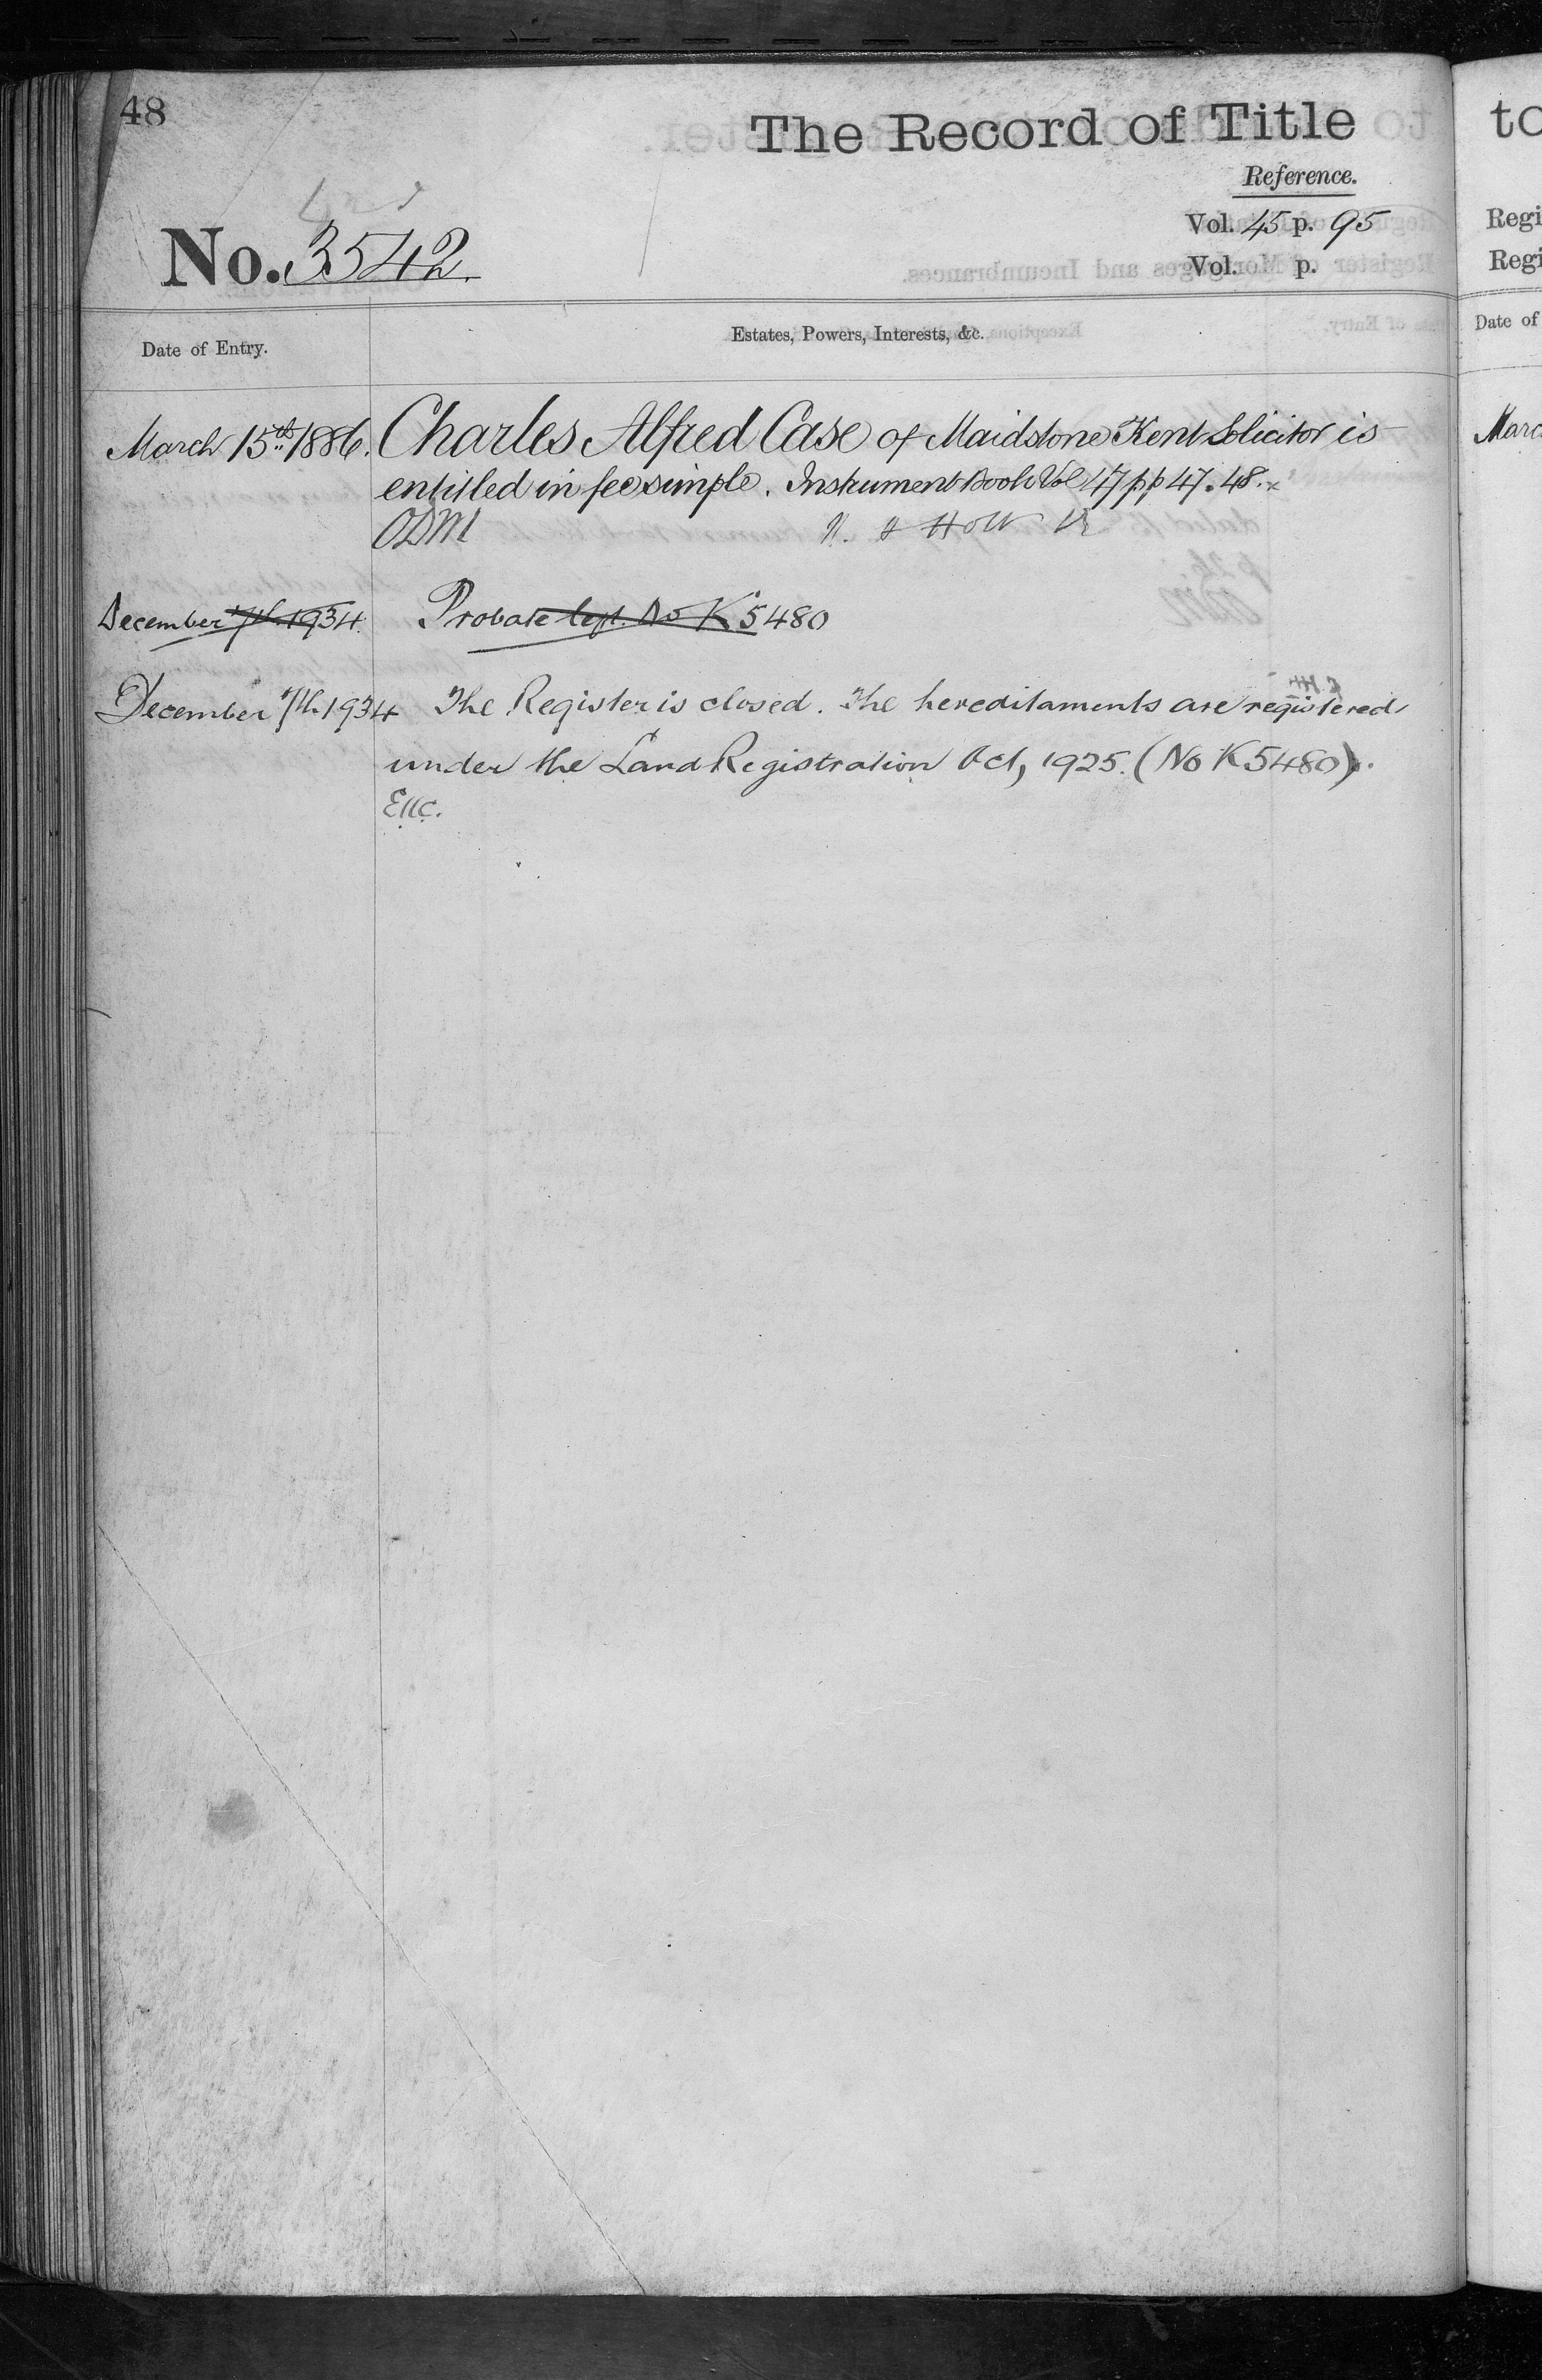 48
The Record of Title
Reference.
Vol. 45 p. 95
No. 3542.
Vol. p.
Date of Entry.
Estates, Powers, Interests, &c.
March 15th 1886. Charles Alfred Case of Maidstone Kent Solicitor is
entitled in fee simple. Instrument Book Vol 47 pp 47. 48.
ODM
December 7th 1934. Probate dept. No K5480
December 7th 1934 The Register is closed. The hereditaments are registered
under the Land Registration Act, 1925. (No K5480).
to
Regi
Regi
Date of
Marc